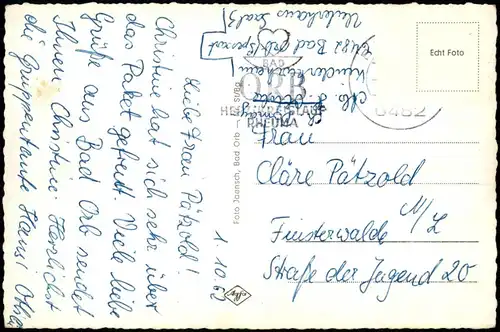 Liebe Frau Pätzold!
Christine hat sich sehr über
das Paket gefreut. Viele liebe
Grüße aus Bad Orb sendet
Ihnen Christine. Herzlichst
die Gruppentante Hansi
1. 10. 62
Foto Jaensch, Bad Orb
Kinderheim
6482 Bad Orb/Spessart
BAD
ORB
HERZ KREISLAUF
RHEUMA
6482
Echt Foto
Frau
Cläre Pätzold
Finsterwalde N/L
Straße der Jugend 20